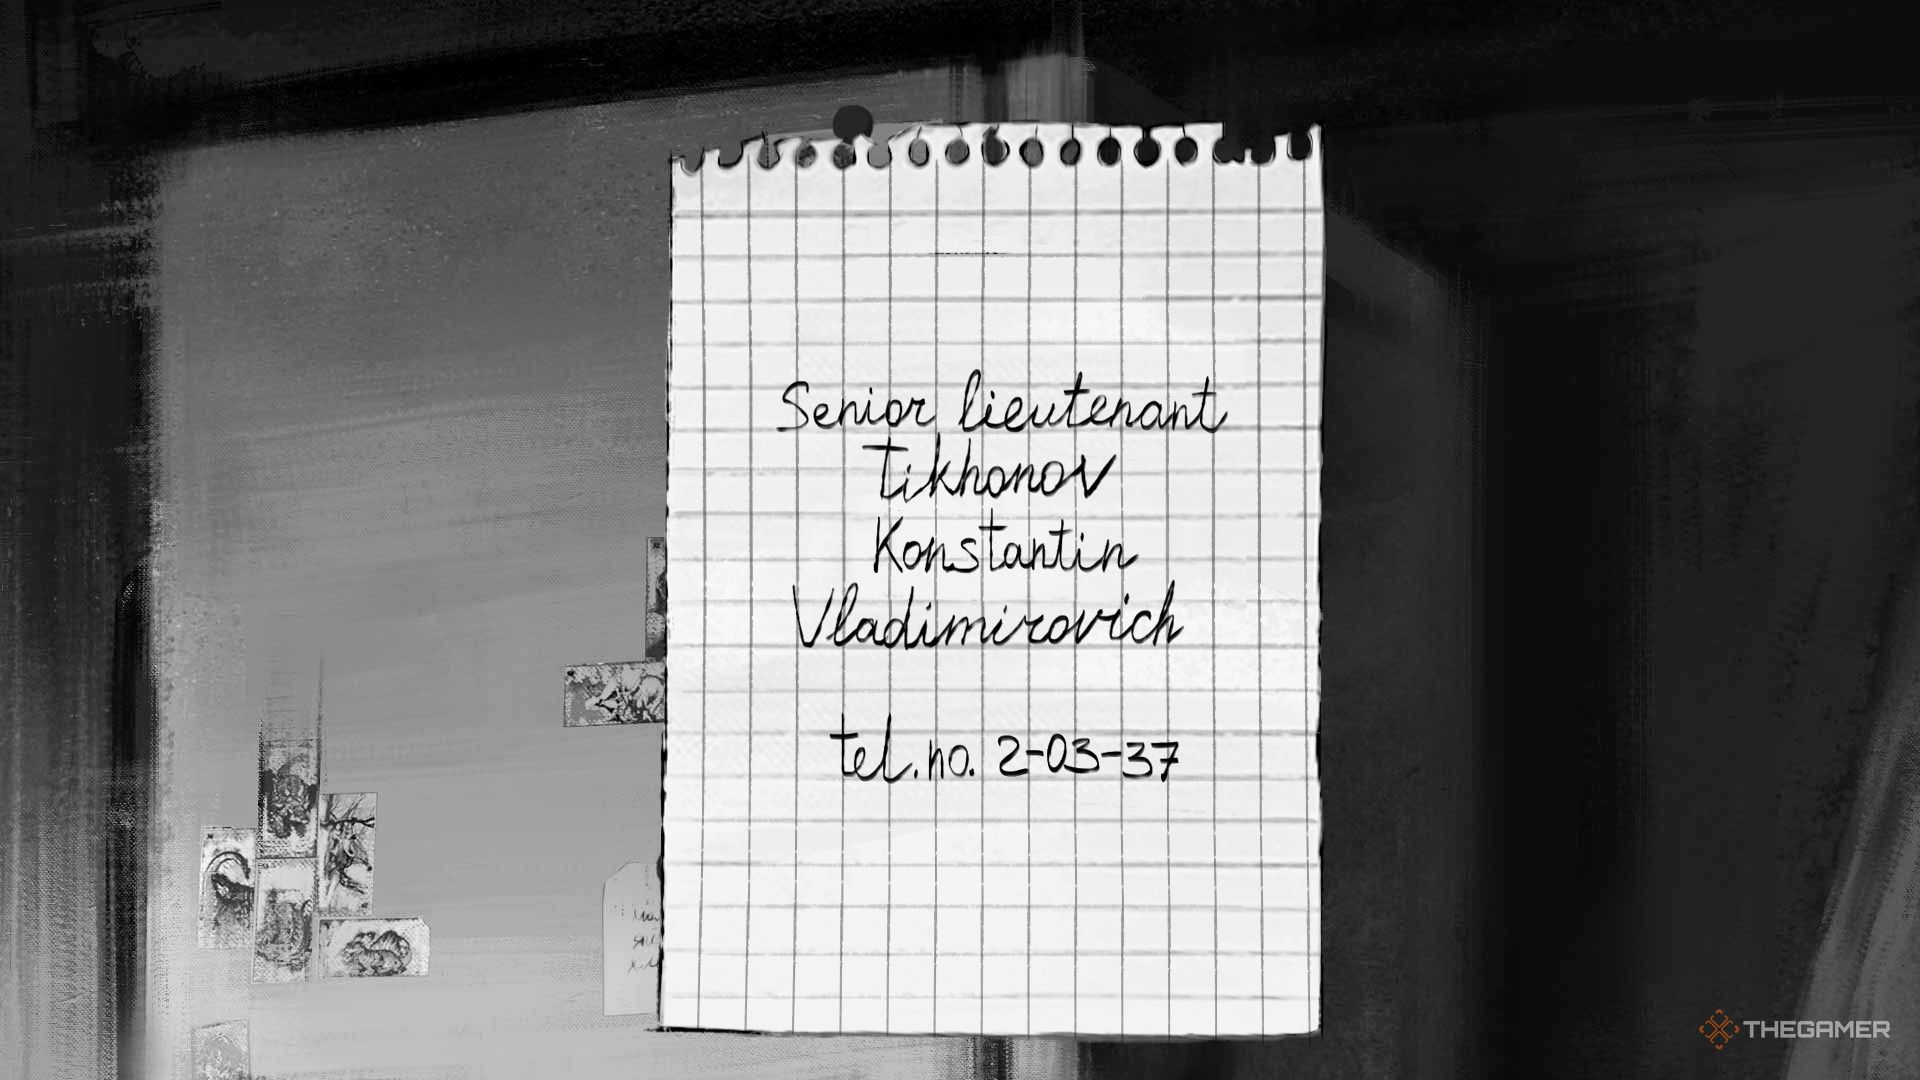 Senior lieutenant
Tikhonov
Konstantin
Vladimirovich
tel.no. 2-03-37
THEGAMER